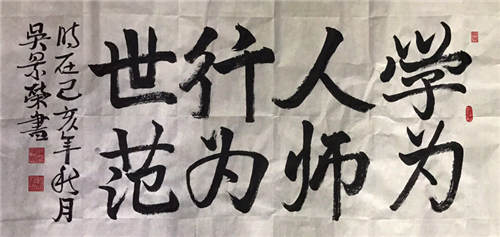 学为
人师
行为
世范
时在己亥年秋月
吴景荣書